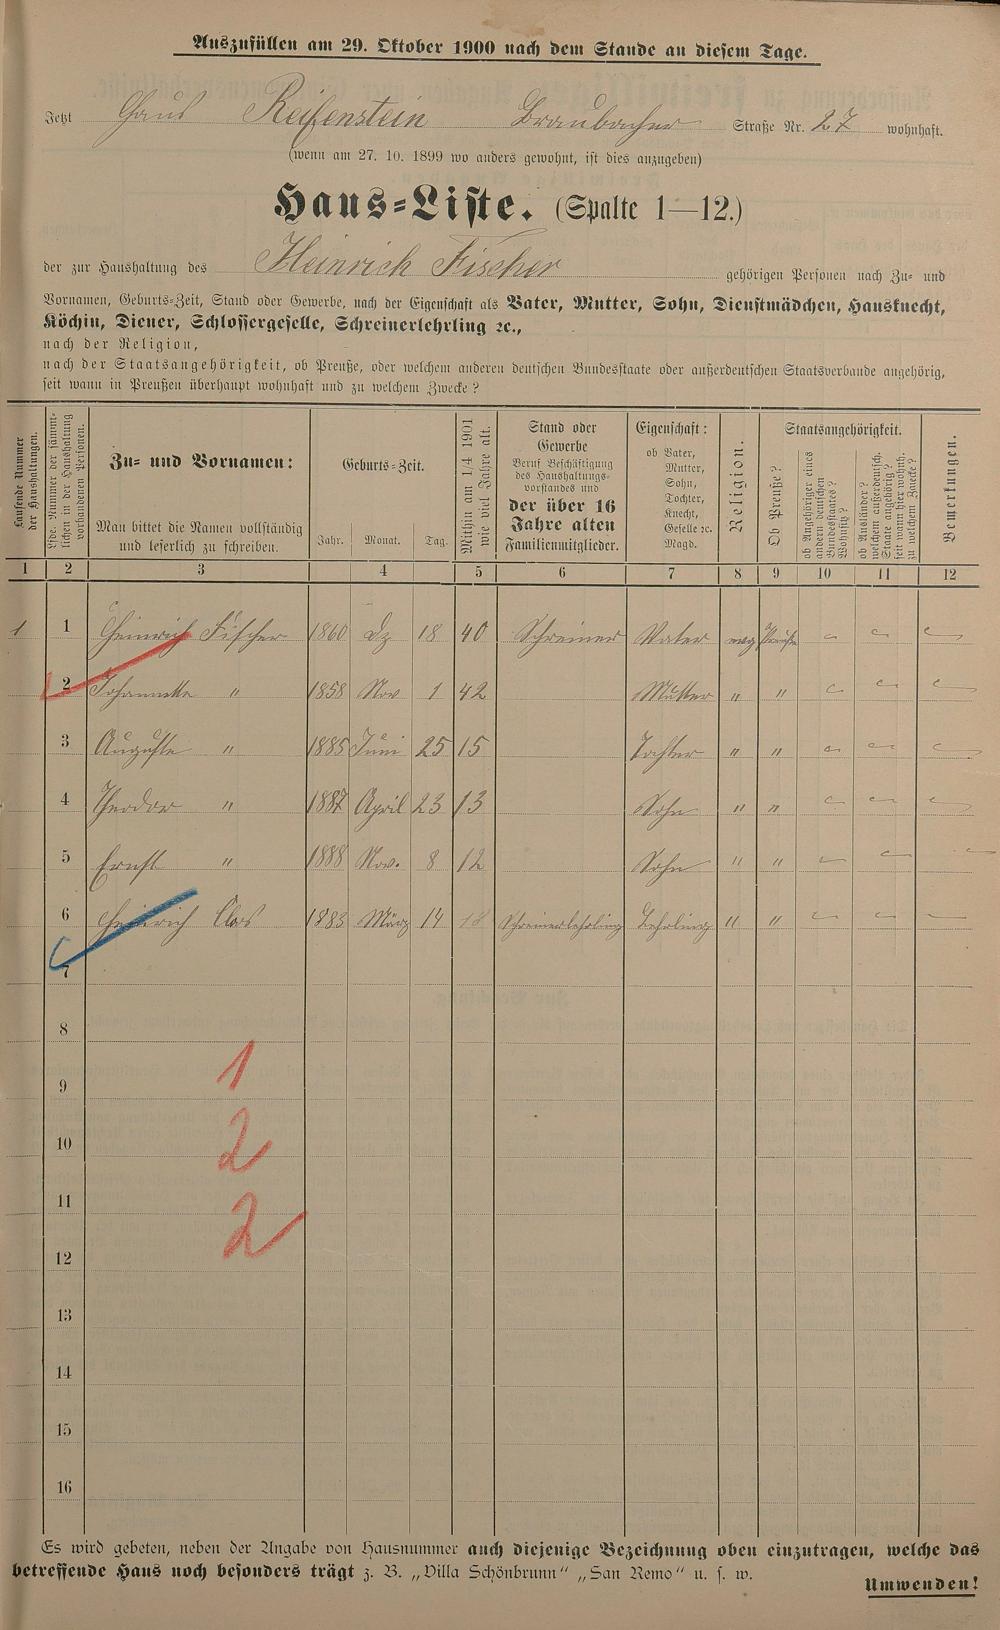 Auszufüllen am 29. Oktober 1900 nach dem Stande an diesem Tage.
Jetzt Haus Reifenstein Braubacher Straße Nr. 27 wohnhaft.
(wenn am 27. 10. 1899 wo anders gewohnt, ist dies anzugeben)
Haus-Liste. (Spalte 1—12.)
der zur Haushaltung des Heinrich Fischer gehörigen Personen nach Zu- und
Vornamen, Geburts-Zeit, Stand oder Gewerbe, nach der Eigenschaft als Vater, Mutter, Sohn, Dienstmädchen, Hausknecht,
Köchin, Diener, Schlossergeselle, Schreinerlehrling ꝛc.,
nach der Religion,
nach der Staatsangehörigkeit, ob Preuße, oder welchem anderen deutschen Bundesstaate oder außerdeutschen Staatsverbande angehörig,
seit wann in Preußen überhaupt wohnhaft und zu welchem Zwecke?
Laufende Nummer der Haushaltungen.
Lfde. Nummer der sämmtlichen in der Haushaltung vorhandenen Personen.
Zu- und Vornamen:
Man bittet die Namen vollständig
und leserlich zu schreiben.
Geburts-Zeit.
Jahr. Monat. Tag.
Mithin am 1/4 1901
wie viel Jahre alt.
Stand oder
Gewerbe
Beruf Beschäftigung
des Haushaltungs-
vorstandes und
der über 16
Jahre alten
Familienmitglieder.
Eigenschaft:
ob Vater,
Mutter,
Sohn,
Tochter,
Knecht,
Geselle ꝛc.
Magd.
Religion.
Staatsangehörigkeit.
Ob Preuße?
ob Angehöriger eines
andern deutschen
Bundesstaates?
Wohnsitz?
ob Ausländer?
welchem außerdeutsch.
Staate angehörig?
seit wann hier wohnh.
zu welchem Zwecke?
Bemerkungen.
1 2 3 4 5 6 7 8 9 10 11 12
1 1 Heinrich Fischer 1860 Dz 18 40 Schreiner Vater evag Preuße
2 Johannette " 1858 Nov 1 42 Mutter " "
3 Auguste " 1885 Juni 25 15 Tochter " "
4 Theodor " 1887 April 23 13 Sohn " "
5 Ernst " 1888 Nov. 8 12 Sohn " "
6 Heinrich 1883 März 14 18 Schreinerlehrling Lehrling " "
7
8
9 1
10 2
11
12 2
13
14
15
16
Es wird gebeten, neben der Angabe von Hausnummer auch diejenige Bezeichnung oben einzutragen, welche das
betreffende Haus noch besonders trägt z. B. „Villa Schönbrunn" „San Remo" u. s. w.
Umwenden!